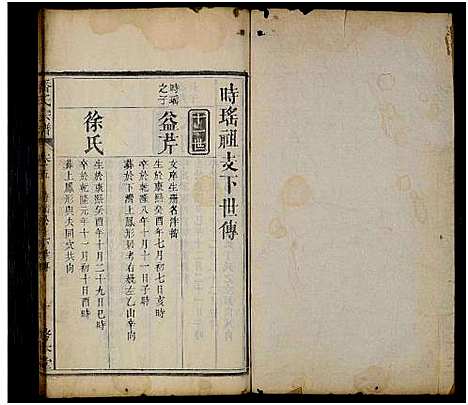 時瑤祖支下世傳
十二世
時瑤
之子
益芹
文庠生冊名泮榜
生於康熙癸酉年七月初七日亥時
卒於乾隆八年十月十一日子時
葬於下灣上鳳形居考右妣左乙山辛向
徐氏
生於康熙癸酉年十月二十九日巳時
卒於乾隆元年十一月初十日酉時
葬上鳳形與夫同穴共向
氏宗譜
卷